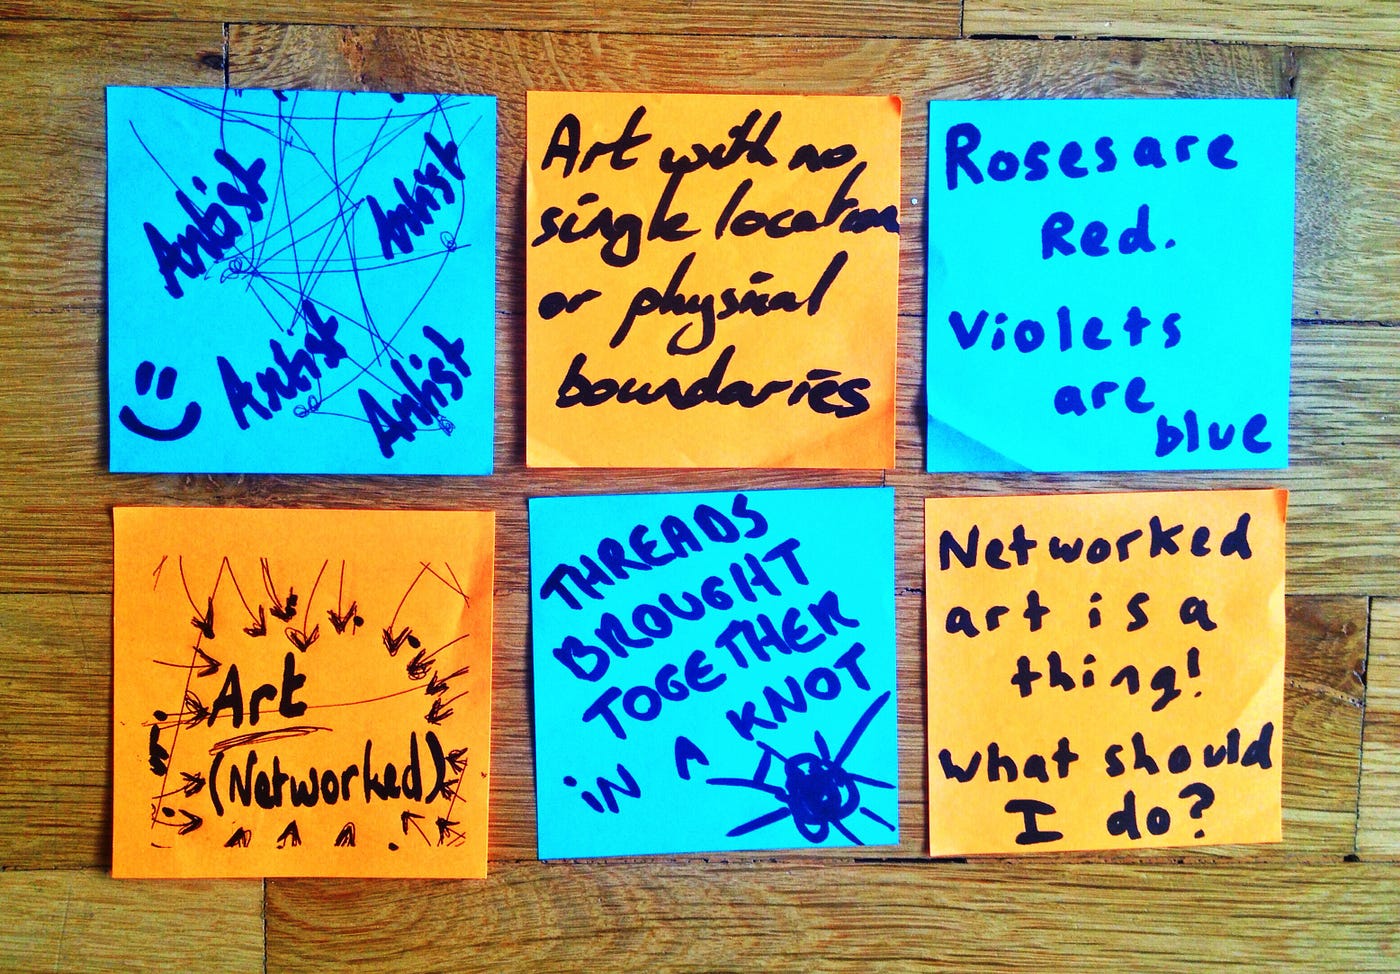 Artist
Artist
Artist
Artist
Art with no
single location
or physical
boundaries
Roses are
Red.
Violets
are
blue
Art
(Networked)
THREADS
BROUGHT
TOGETHER
iN A KNOT
Networked
art is a
thing!
what should
I do?